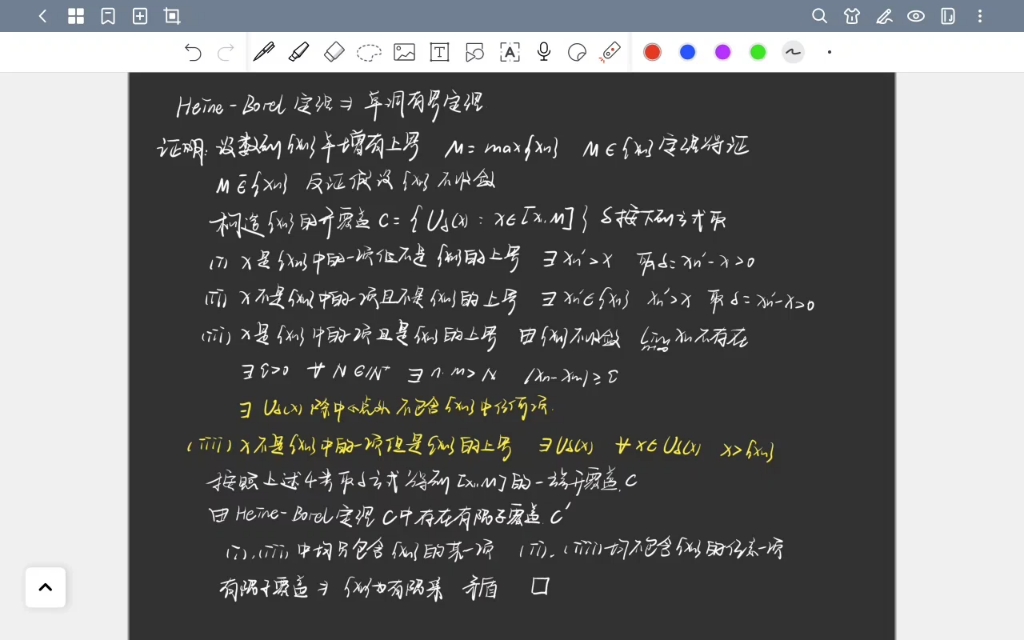 Heine-Borel 定理 ⇒ 单调有界定理
证明: 设数列{xn}单增有上界 M = max{xn} M∈{xn} 定理得证
M∉{xn} 反证假设{xn}不收敛
构造{xn}的开覆盖 C = {Uδ(x) : x∈[x, M]} δ按下列方式取
(i) x是{xn}中的一项但不是{xn}的上界 ∃ xn'>x 取δ=xn'-x>0
(ii) x不是{xn}中的一项且不是{xn}的上界 ∃ xn'∈{xn} xn'>x 取δ=xn'-x>0
(iii) x是{xn}中的项且是{xn}的上界 由{xn}不收敛 lim xn不存在
∃ε>0 ∀N∈N⁺ ∃n.m>N |xn-xm|≥ε
∃ Uδ(x) 除中心点外不包含{xn}中任何项.
(iiii) x不是{xn}中的一项但是{xn}的上界 ∃Uδ(x) ∀x∈Uδ(x) x>{xn}
按照上述4类取δ方式得到[x,M]的一族开覆盖.C
由Heine-Borel定理 C中存在有限子覆盖.C'
(i).(iii)中均只包含{xn}的某一项 (ii).(iiii)均不包含{xn}的任意一项
有限子覆盖 ⇒ {xn}为有限集 矛盾 □